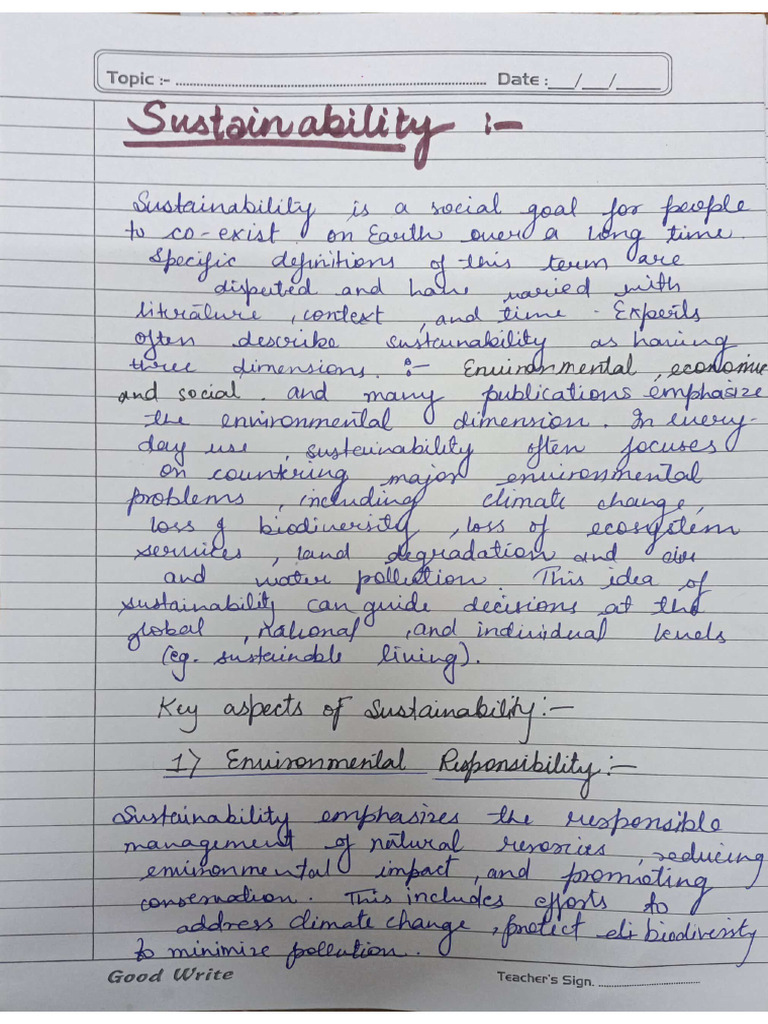 Topic :- ............................ Date :__/__/____
Sustainability :-
Sustainability is a social goal for people
to co-exist on Earth over a long time.
Specific definitions of this term are
disputed and have varied with
literature, context, and time. Experts
often describe sustainability as having
three dimensions. :- Environmental, economic
and social. and many publications emphasize
the environmental dimension. In every-
day use, sustainability often focuses
on countering major environmental
problems, including climate change,
loss of biodiversity, loss of ecosystem
services, land degradation and air
and water pollution. This idea of
sustainability can guide decisions at the
global, national, and individual levels
(eg. sustainable living).
Key aspects of Sustainability:-
1) Environmental Responsibility:-
Sustainability emphasizes the responsible
management of natural resorcies, reducing
environmental impact, and promoting
conservation. This includes efforts to
address climate change, protect biodiversity
to minimize pollution.
Good Write Teacher's Sign. ....................